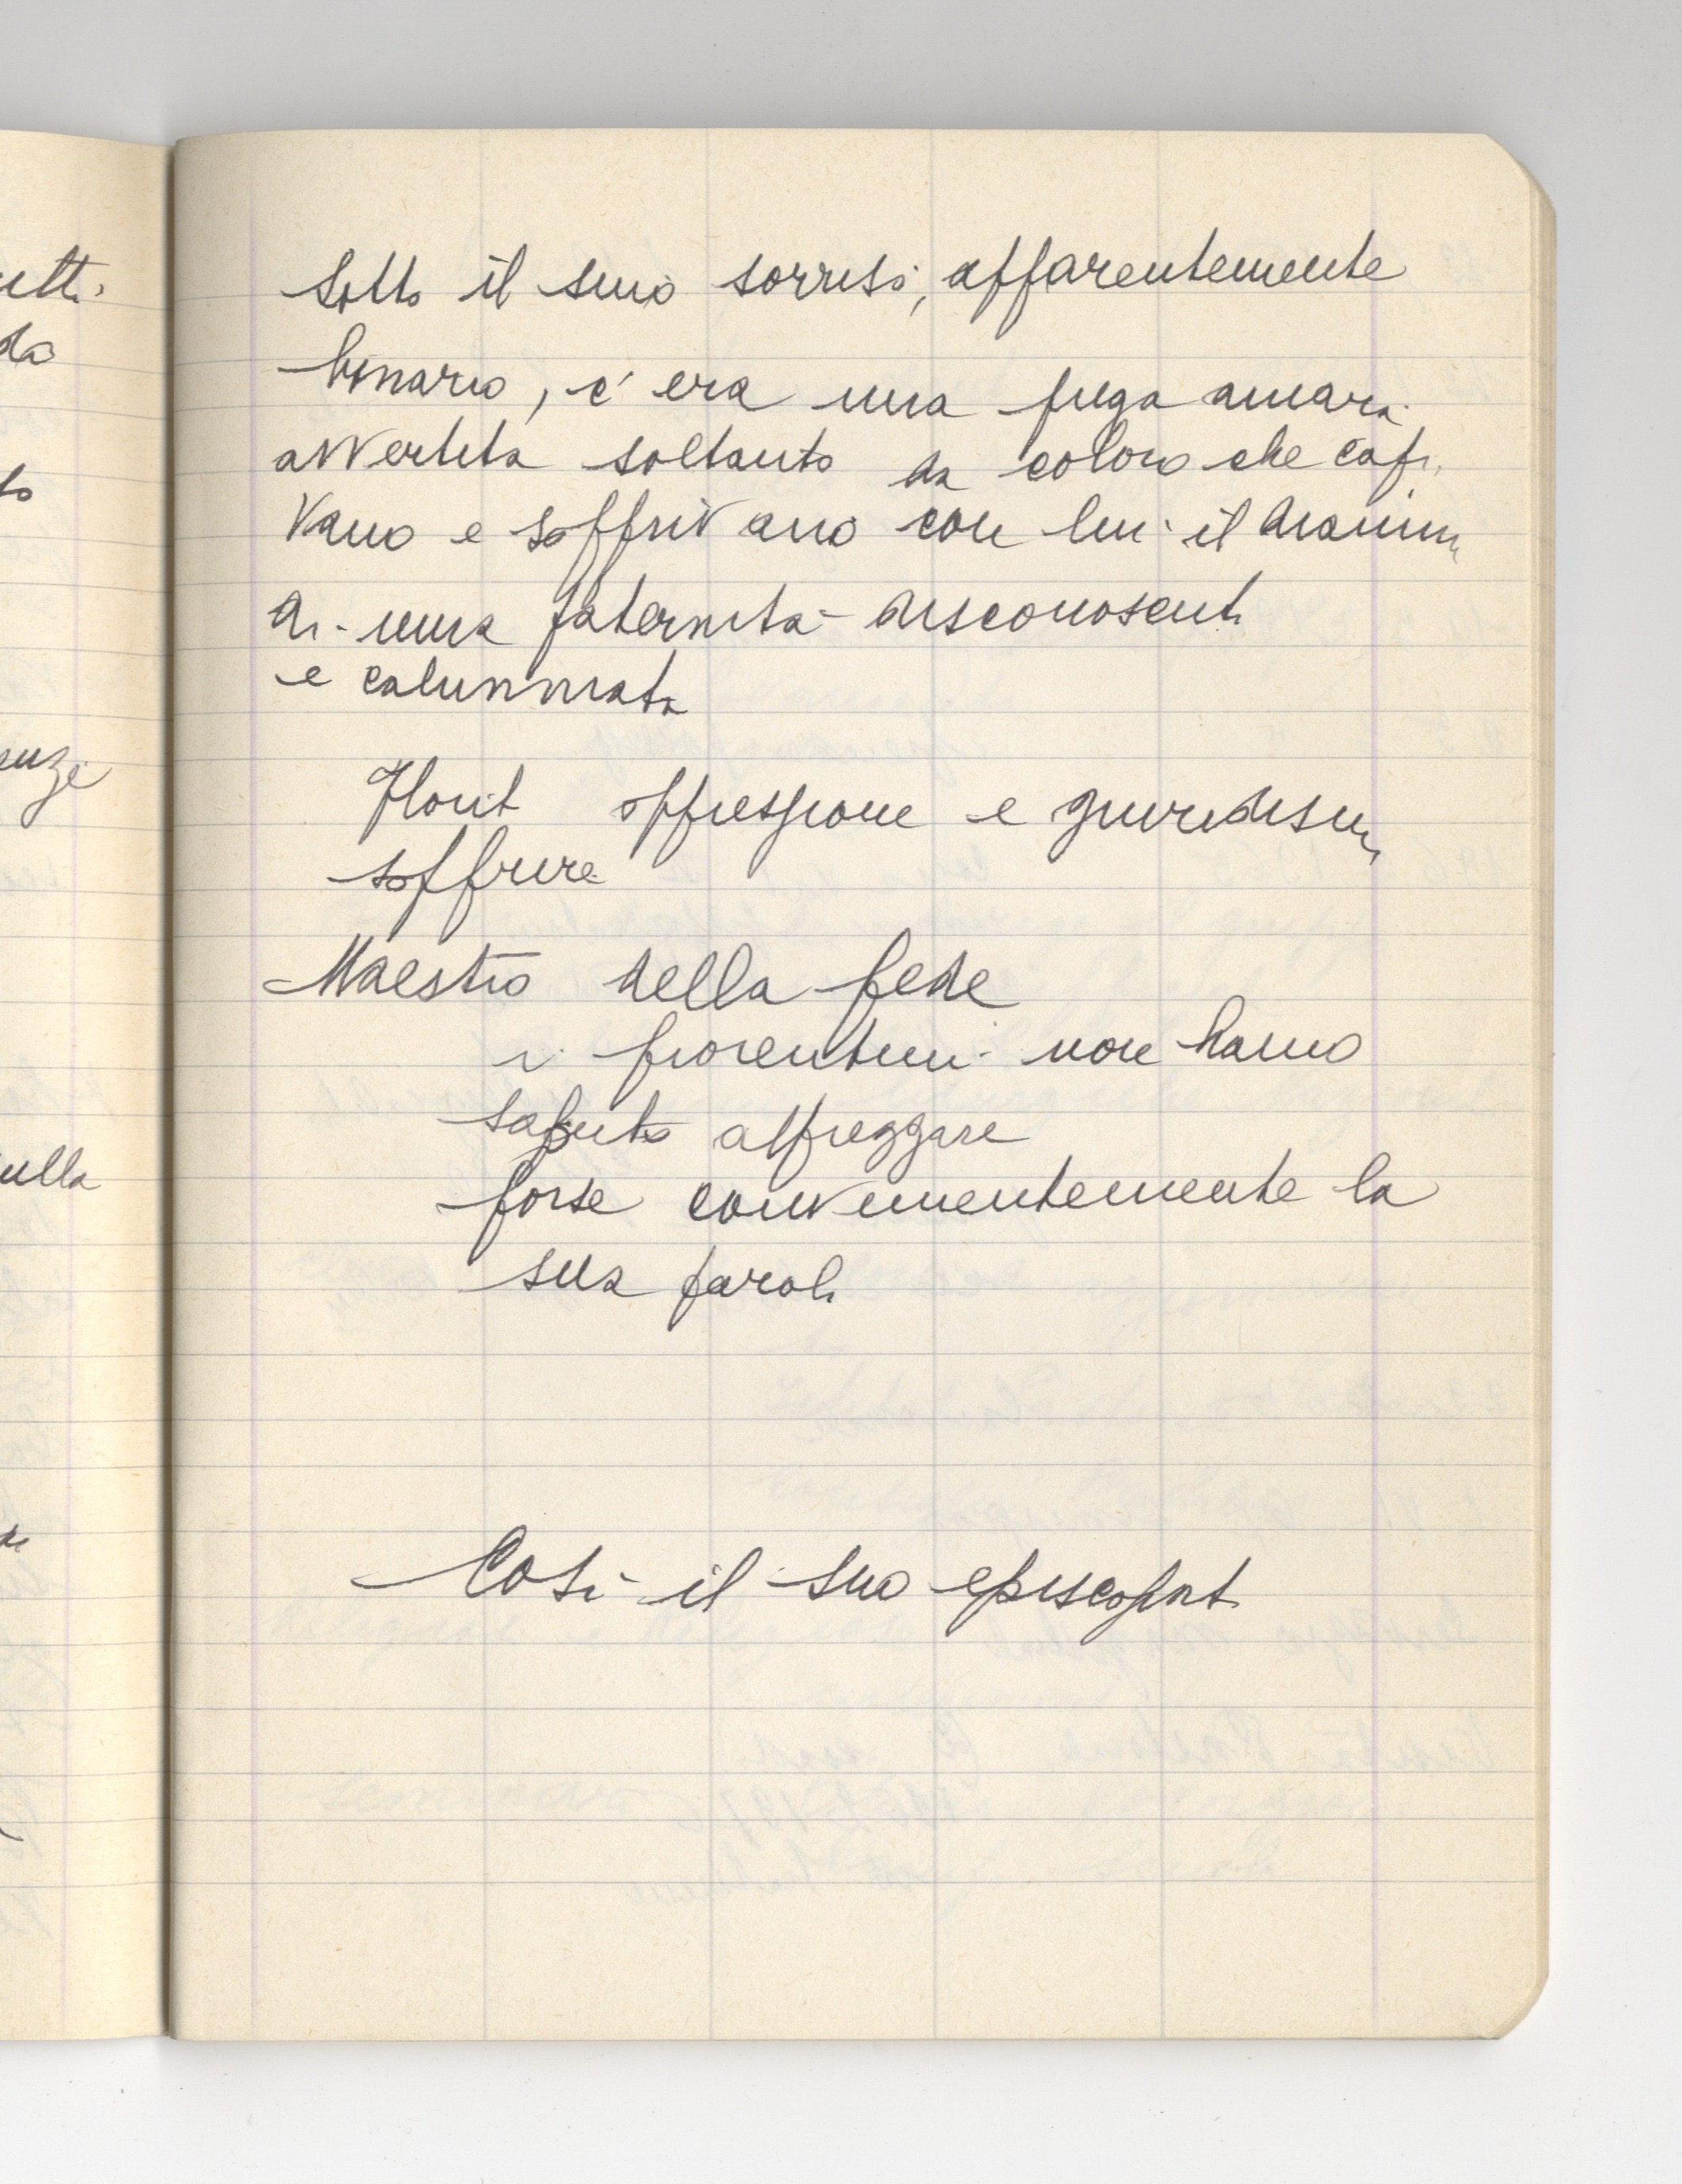 Sotto il suo sorriso, apparentemente
bonario, c'era una piega amara
avvertita soltanto da coloro che capi
vano e soffrivano con lui il dramma
di una paternità disconosciuta
e calunniata
Florit oppressione e giuridismo
soffrire
Maestro della fede
i fiorentini non hanno
saputo apprezzare
forse convenientemente la
sua parola
Così il suo episcopato